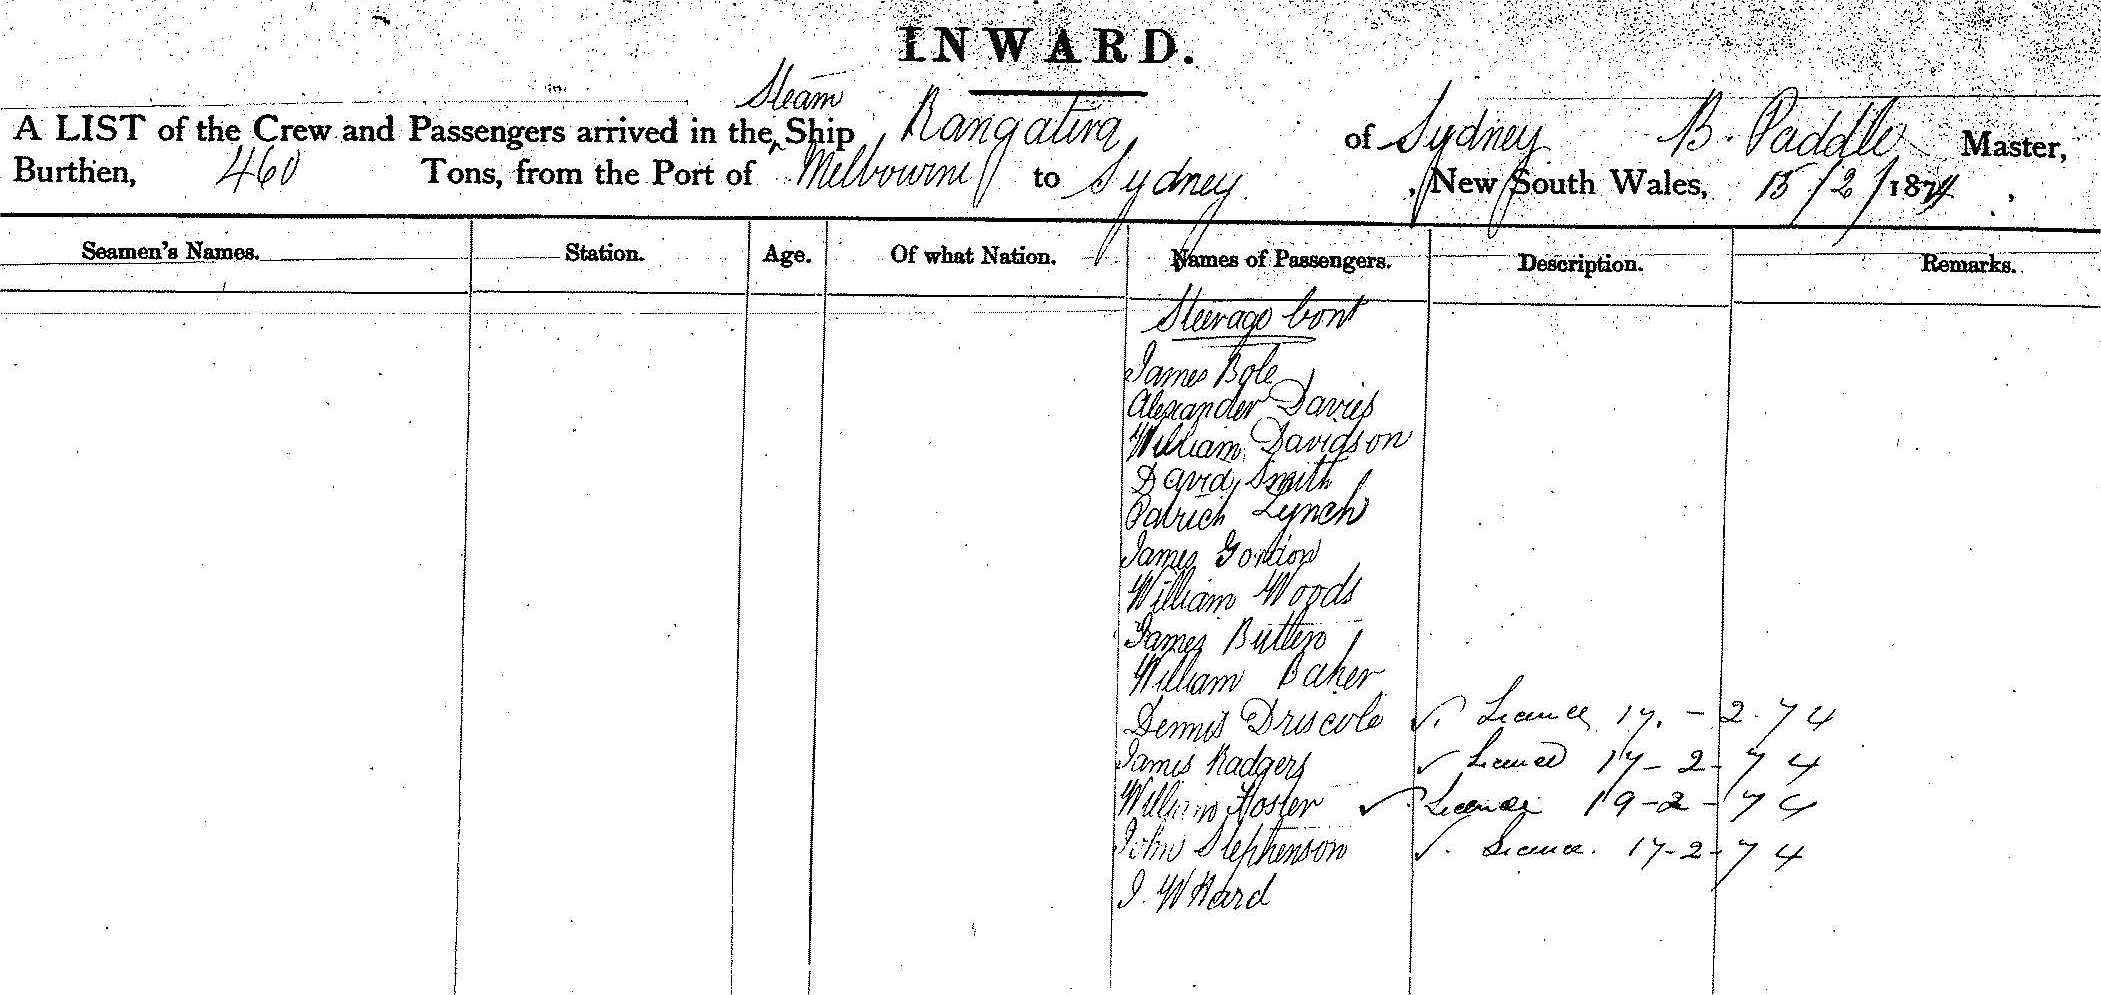 INWARD.
Steam
A LIST of the Crew and Passengers arrived in the Ship Rangatira of Sydney B. Paddle Master,
Burthen, 460 Tons, from the Port of Melbourne to Sydney, New South Wales, 15/2/1874
Seamen's Names. Station. Age. Of what Nation. Names of Passengers. Description. Remarks.
Steerage Cont
James Bole
Alexander Davies
William Davidson
David Smith
Patrick Lynch
James Gordon
William Woods
James Butler
William Baker
Dennis Driscole ✓. 17. - 2. 74
James Radgers ✓ 17 - 2 - 74
William Foster ✓ 19 - 2 - 74
John Stephenson ✓. 17 - 2 - 74
J. W Ward